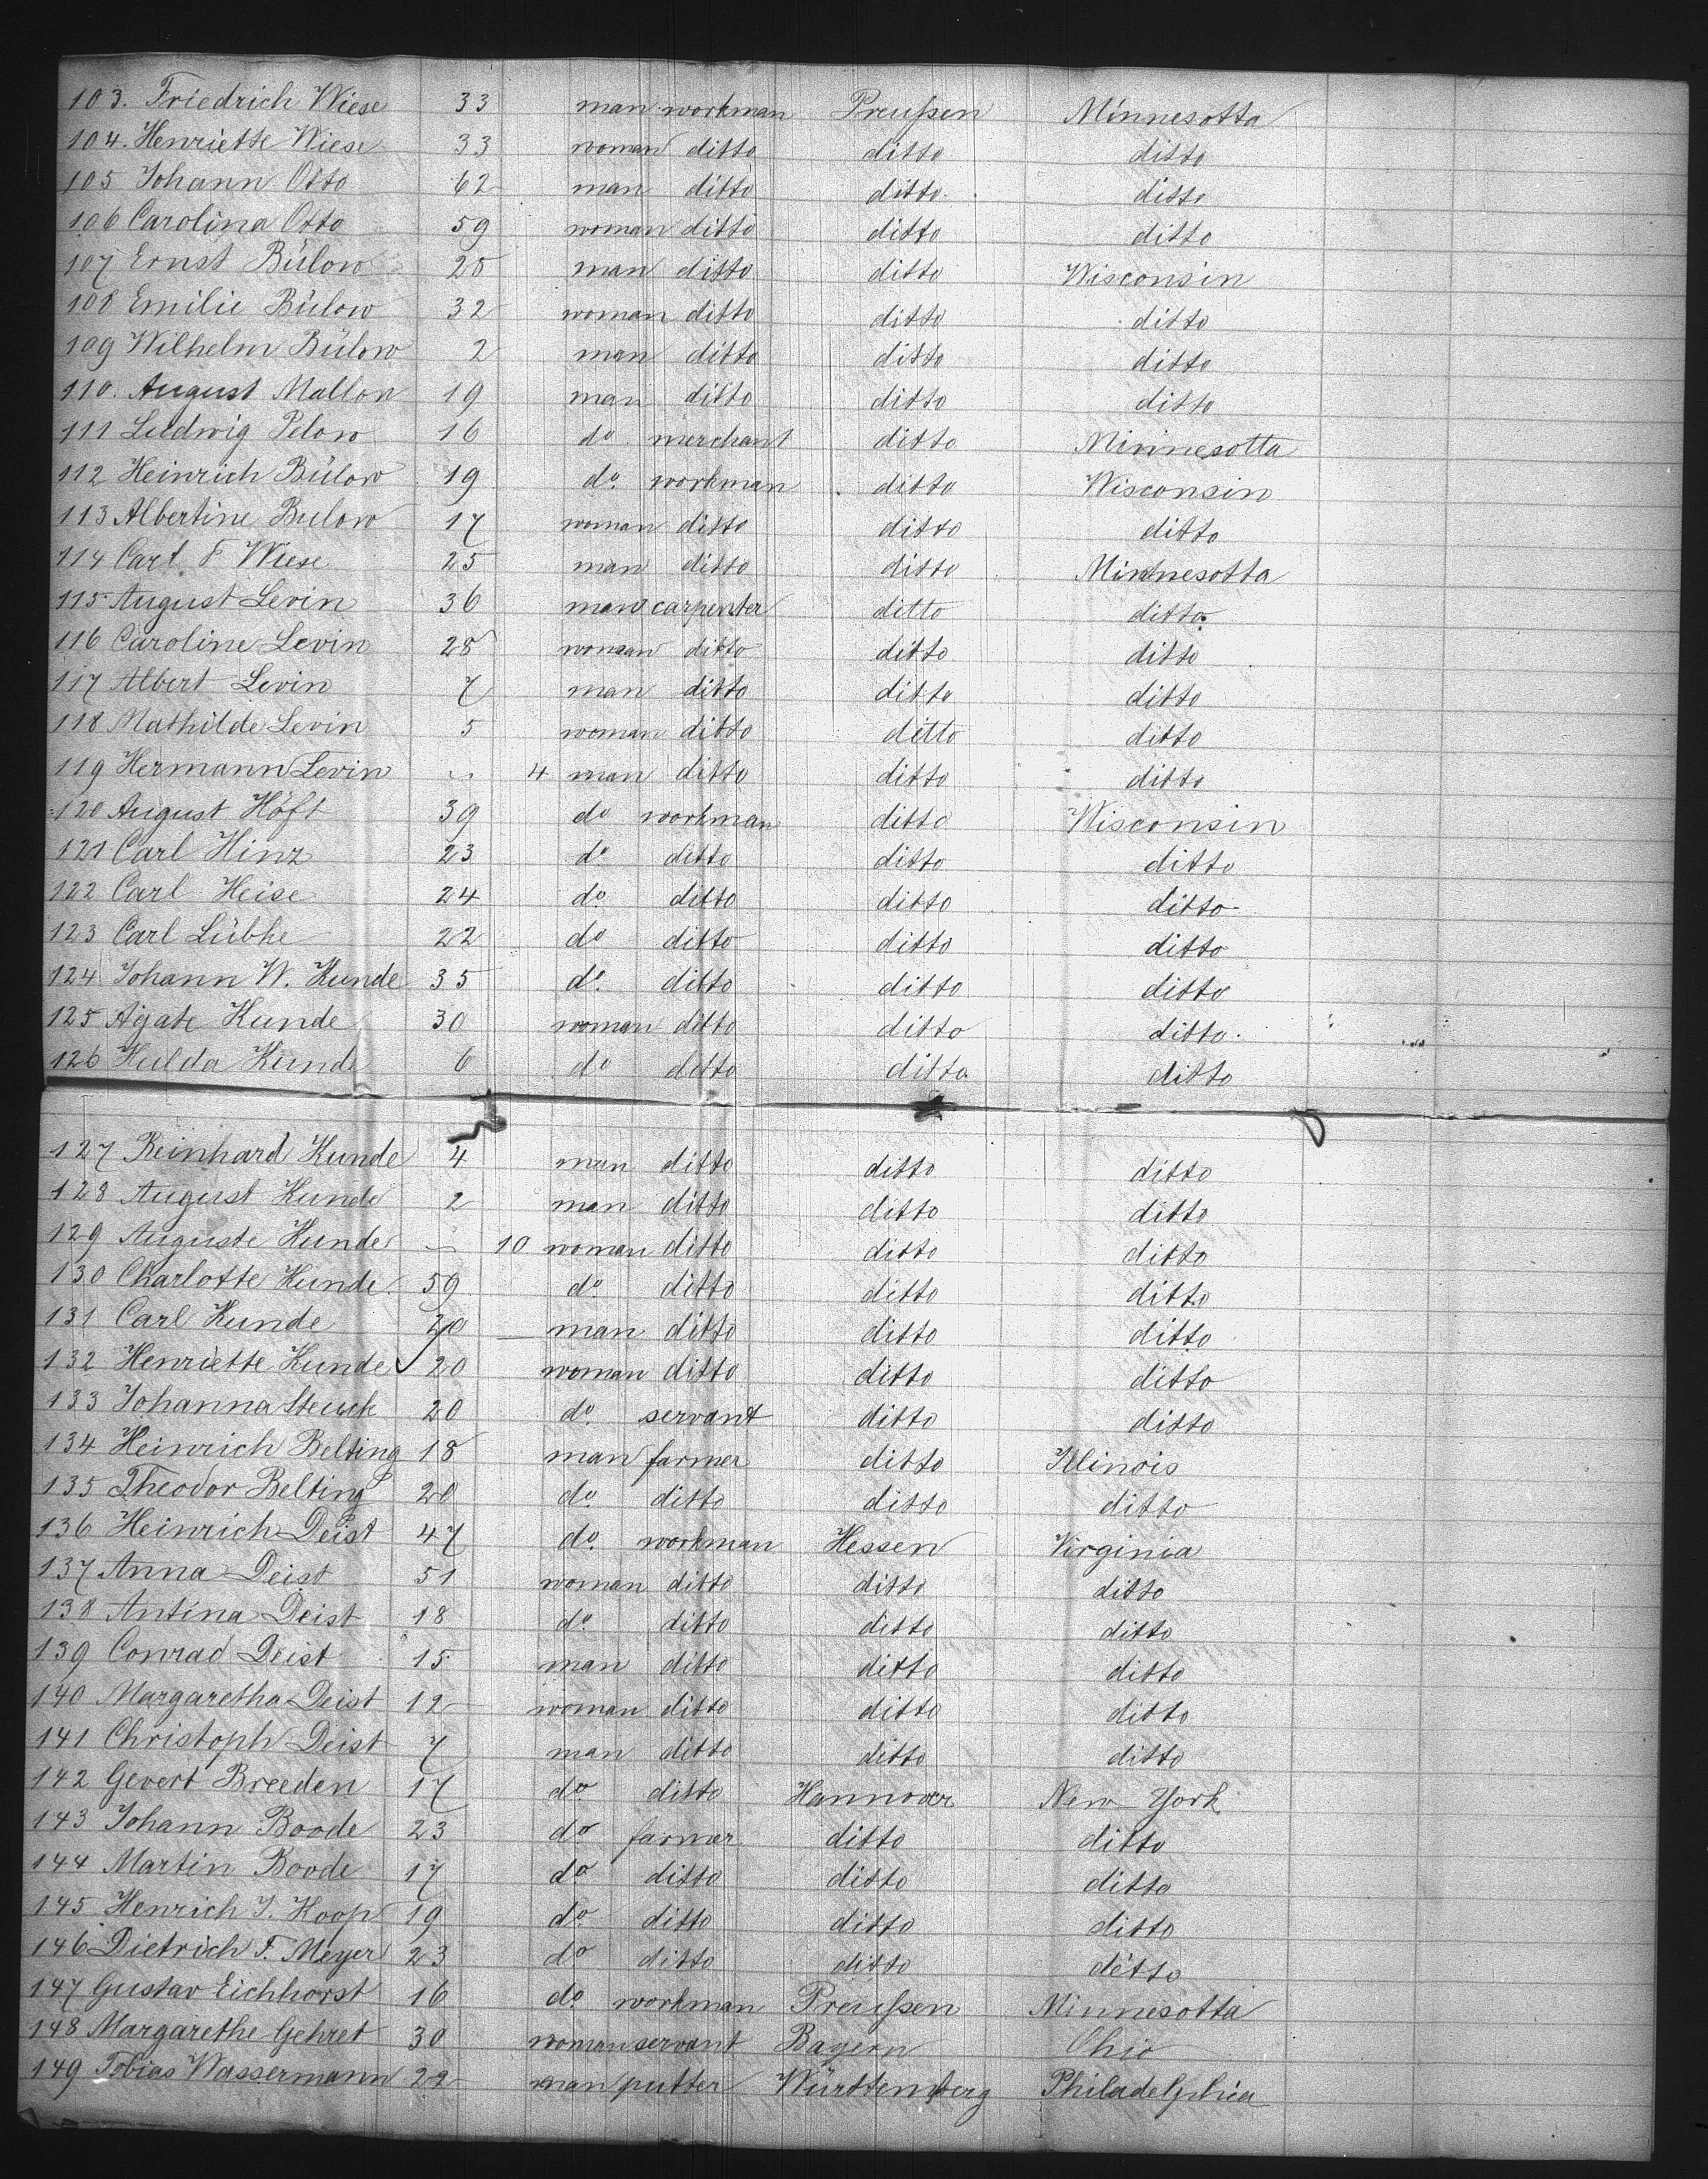 103. Friedrich Wiese 33 man workman Preußen Minnesotta
104. Henriette Wiese 33 woman ditto ditto ditto
105 Johann Otto 62 man ditto ditto ditto
106 Carolina Otto 59 woman ditto ditto ditto
107 Ernst Bülow 25 man ditto ditto Wisconsin
108 Emilie Bülow 32 woman ditto ditto ditto
109 Wilhelm Bülow 2 man ditto ditto ditto
110. August Mallon 19 man ditto ditto ditto
111 Ludwig Pelow 16 do. merchant ditto Minnesotta
112 Heinrich Bülow 19 do. workman ditto Wisconsin
113 Albertine Bulow 17 woman ditto ditto ditto
114 Carl F Wiese 25 man ditto ditto Minnesotta
115 August Levin 36 man carpenter ditto ditto
116 Caroline Levin 28 woman ditto ditto ditto
117 Albert Levin 7 man ditto ditto ditto
118 Mathilde Levin 5 woman ditto ditto ditto
119 Hermann Levin 4 man ditto ditto ditto
120 August Höft 39 do workman ditto Wisconsin
121 Carl Hinz 23 do. ditto ditto ditto
122 Carl Heise 24 do ditto ditto ditto
123 Carl Lübke 22 do ditto ditto ditto
124 Johann W. Kunde 35 do. ditto ditto ditto
125 Agate Kunde 30 woman ditto ditto ditto
126 Hulda Kunde 6 do ditto ditto ditto
127 Reinhard Kunde 4 man ditto ditto ditto
128 August Kunde 2 man ditto ditto ditto
129 Auguste Kunde 10 woman ditto ditto ditto
130 Charlotte Kunde 59 do. ditto ditto ditto
131 Carl Kunde 20 man ditto ditto ditto
132 Henriette Kunde 20 woman ditto ditto ditto
133 Johanna Steuck 20 do. servant ditto ditto
134 Heinrich Belting 18 man farmer ditto Illinois
135 Theodor Belting 20 do. ditto ditto ditto
136 Heinrich Deist 47 do. workman Hessen Virginia
137 Anna Deist 51 woman ditto ditto ditto
138 Antina Deist 18 do. ditto ditto ditto
139 Conrad Deist 15 man ditto ditto ditto
140 Margaretha Deist 12 woman ditto ditto ditto
141 Christoph Deist 7 man ditto ditto ditto
142 Gevert Breeden 17 do ditto Hannover New York
143 Johann Boode 23 do farmer ditto ditto
144 Martin Boode 17 do ditto ditto ditto
145 Henrich J. Hoop 19 do. ditto ditto ditto
146 Dietrich F. Meyer 23 do ditto ditto ditto
147 Gustav Eichhorst 16 do. workman Preußen Minnesotta
148 Margarethe Gehret 30 woman servant Bayern Ohio
149 Tobias Wassermann 22 man putter Württemberg Philadelphia